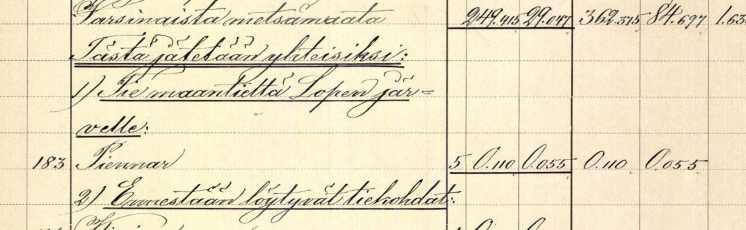 Varsinaista metsämaata 249.415 29.047 362.375 84.697 1.63
Tästä jätetään yhteisiksi:
1) Tie maantieltä Lopen jär=
velle:
183 Piennar 5 0.110 0.055 0.110 0.055
2) Ennestään löytyvät tiekohdat: